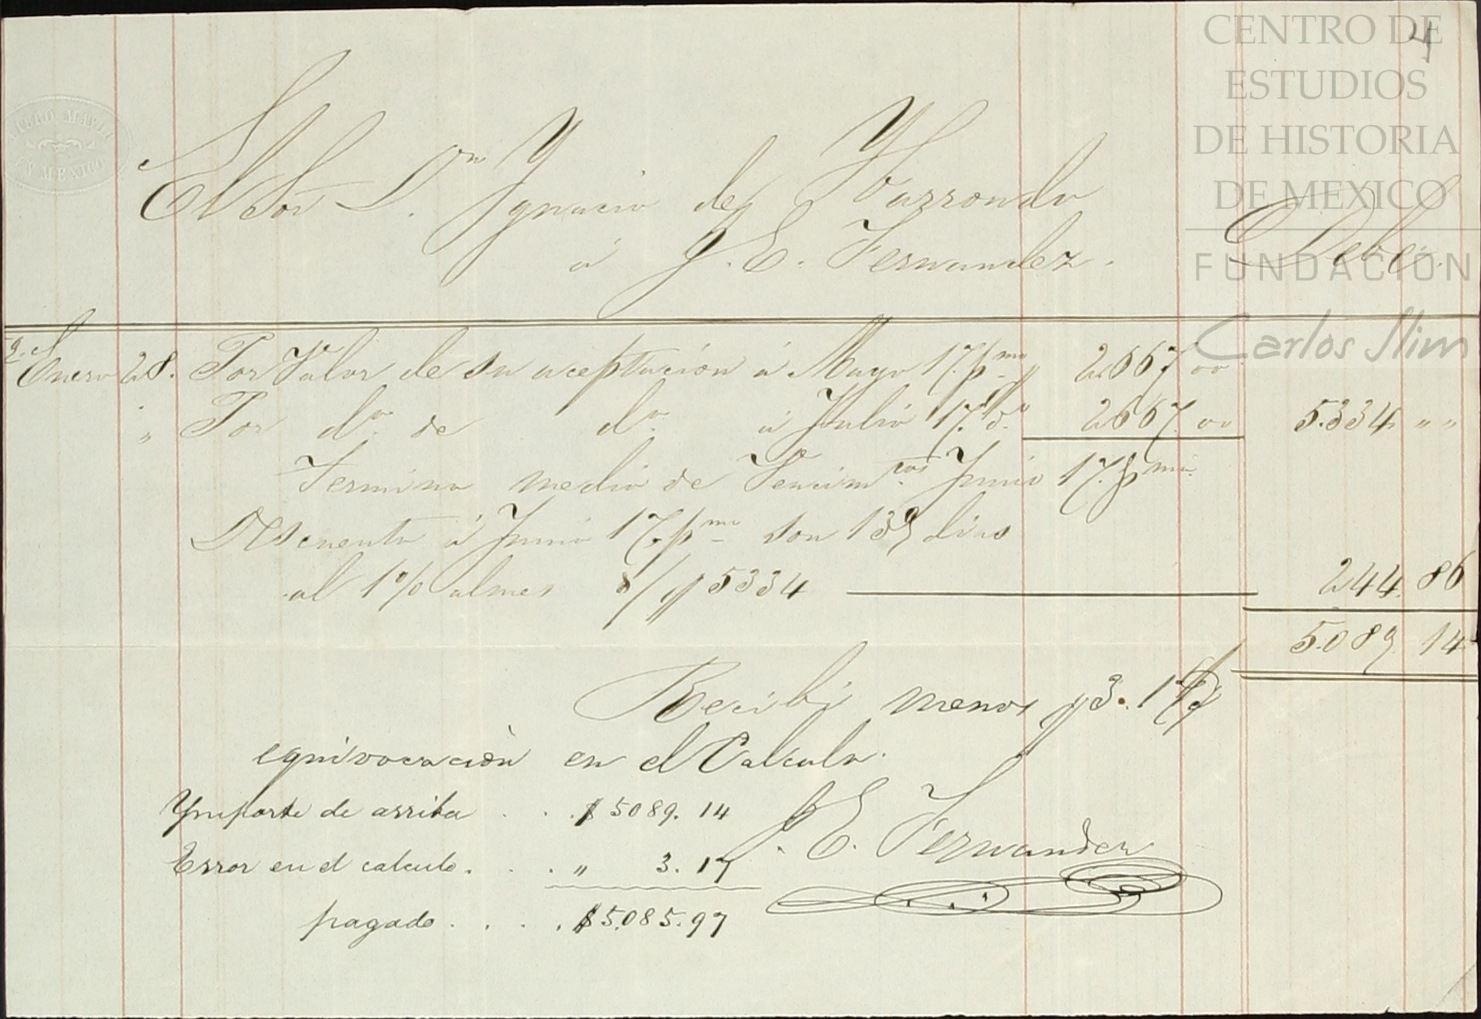 CENTRO DE
ESTUDIOS
DE HISTORIA
DE MEXICO
FUNDACIÓN
Carlos Slim
4
EN MEXICO
El Sor Dn Ygnacio de Yzarrondo Debe
á J. E. Fernandez.
Enero 28. Por Valor de su aceptación á Mayo 17. pmo $ 2667 00
" Por do. de do. á Julio 17. do 2667. 00 5.334 " "
Termino medio de Vencimtos Junio 17. pmo
Descuento á Junio 17. pmo son 139 dias
al 1% al mes s/ $ 5334 244. 86
5.089 14
Recibí menos $3. 17
equivocación en el Calculo.
Ymporte de arriba . . . $ 5089. 14
Error en el calculo . . . " 3. 17
pagado . . . . $ 5.085. 97
J. E. Fernandez